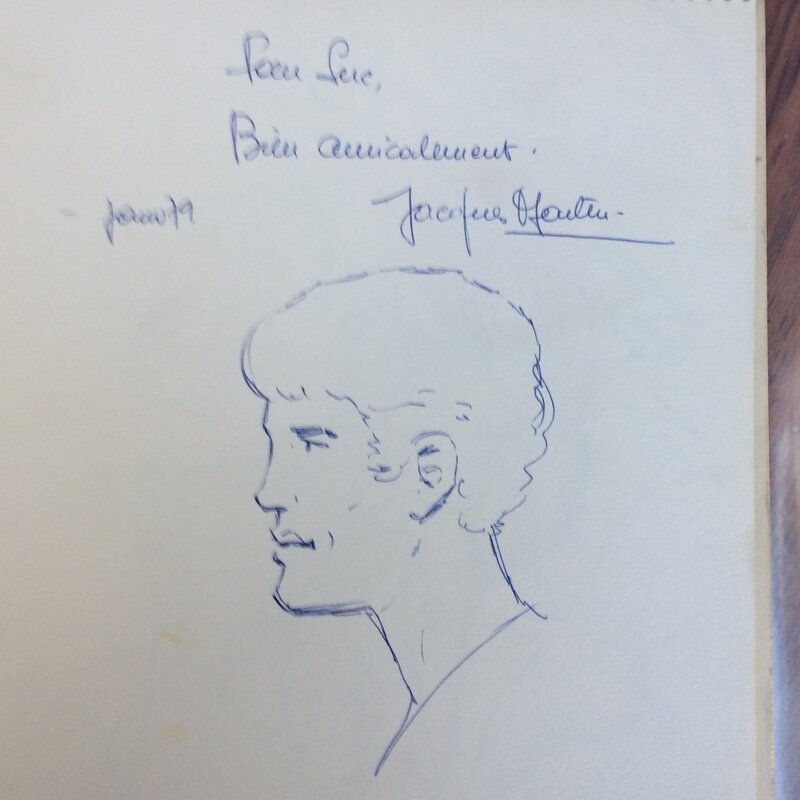 Pour Luc,
Bien amicalement.
janv 79
Jacques Martin